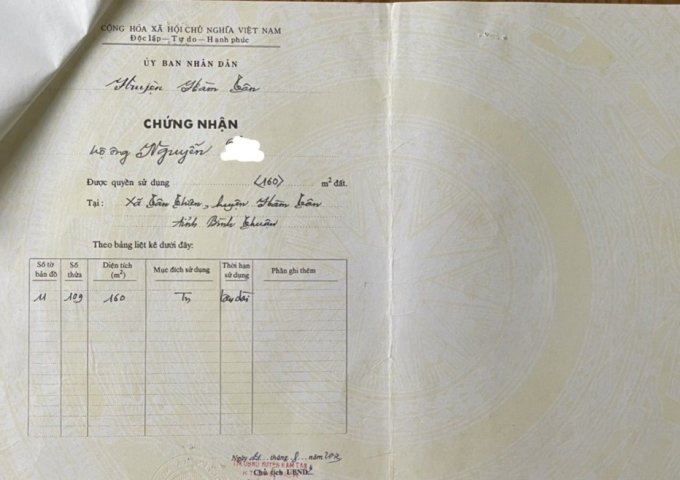 CỘNG HÒA XÃ HỘI CHỦ NGHĨA VIỆT NAM
Độc lập - Tự do - Hạnh phúc
ỦY BAN NHÂN DÂN
Huyện Hàm Tân
CHỨNG NHẬN
hộ ông Nguyễn
Được quyền sử dụng <160> m² đất.
Tại: Xã Tân Thiện, huyện Hàm Tân
tỉnh Bình Thuận
Theo bảng liệt kê dưới đây:
Số tờ bản đồ Số thửa Diện tích (m²) Mục đích sử dụng Thời hạn sử dụng Phần ghi thêm
11 109 160 lâu dài
Ngày tháng năm
TM.UBND HUYỆN HÀM TÂN
Chủ tịch UBND